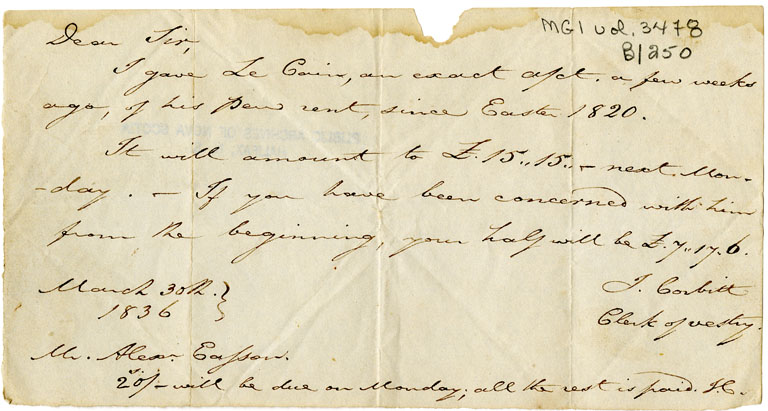 MG1 vol. 3478
B/250
Dear Sir,
I gave Le Cain, an exact acct. a few weeks
ago, of his Pew rent, since Easter 1820.
It will amount to £.15,,15,,- next Mon-
-day. - If you have been concerned with him
from the beginning, your half will be £.7,,17.6.
March 30th. }
1836
J. Corbitt
Clerk of vestry.
Mr. Alexr. Easson.
20/- will be due on Monday; all the rest is paid. J.C.
PUBLIC ARCHIVES OF NOVA SCOTIA
HALIFAX